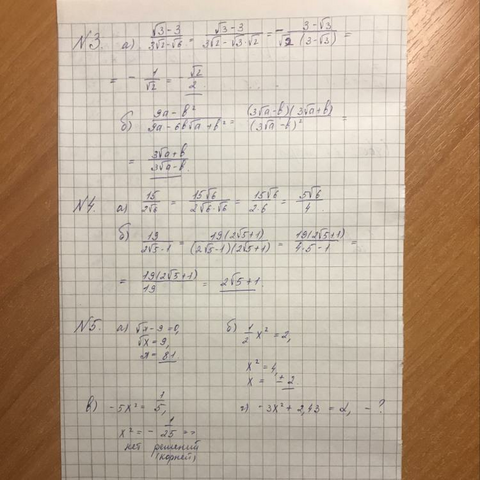 №3. а) (√3-3)/(3√2-√6) = (√3-3)/(3√2-√3·√2) = - (3-√3)/(√2 (3-√3)) =
= - 1/√2 = - √2/2
б) (9a-b²)/(9a-6b√a+b²) = (3√a-b)(3√a+b)/(3√a-b)² =
= (3√a+b)/(3√a-b)
№4. а) 15/(2√6) = 15√6/(2√6·√6) = 15√6/(2·6) = 5√6/4
б) 19/(2√5-1) = 19(2√5+1)/((2√5-1)(2√5+1)) = 19(2√5+1)/(4·5-1) =
= 19(2√5+1)/19 = 2√5+1.
№5. а) √x-9=0, б) 1/2 x² = 2,
√x = 9,
x = 81
x² = 4,
x = ±2
в) -5x² = 1/5, г) -3x² + 2,43 = 2, - ?
x² = - 1/25 =>
нет решений
(корней)